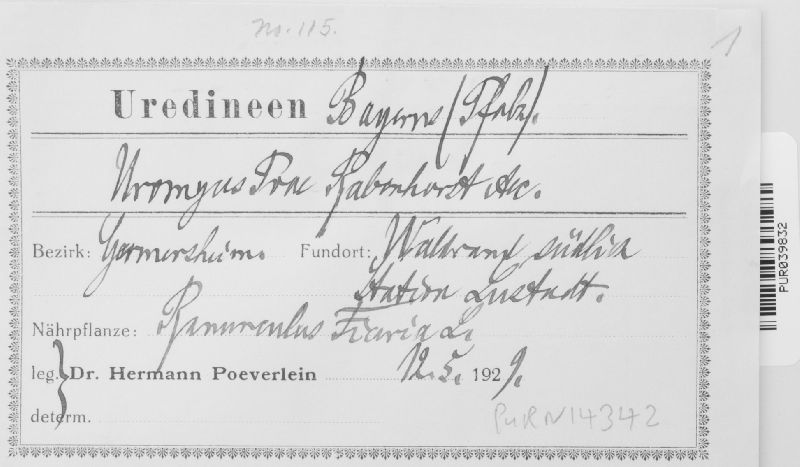 No. 115.
1
Uredineen Bayerns (Pfalz).
Uromyces Poae Rabenhorst Aec.
Bezirk: Germersheim. Fundort: Waldrand südlich
Station Lustadt.
Nährpflanze: Ranunculus Ficaria L.
leg. Dr. Hermann Poeverlein 12. 5. 1929.
determ.
PURN14342
PUR039832